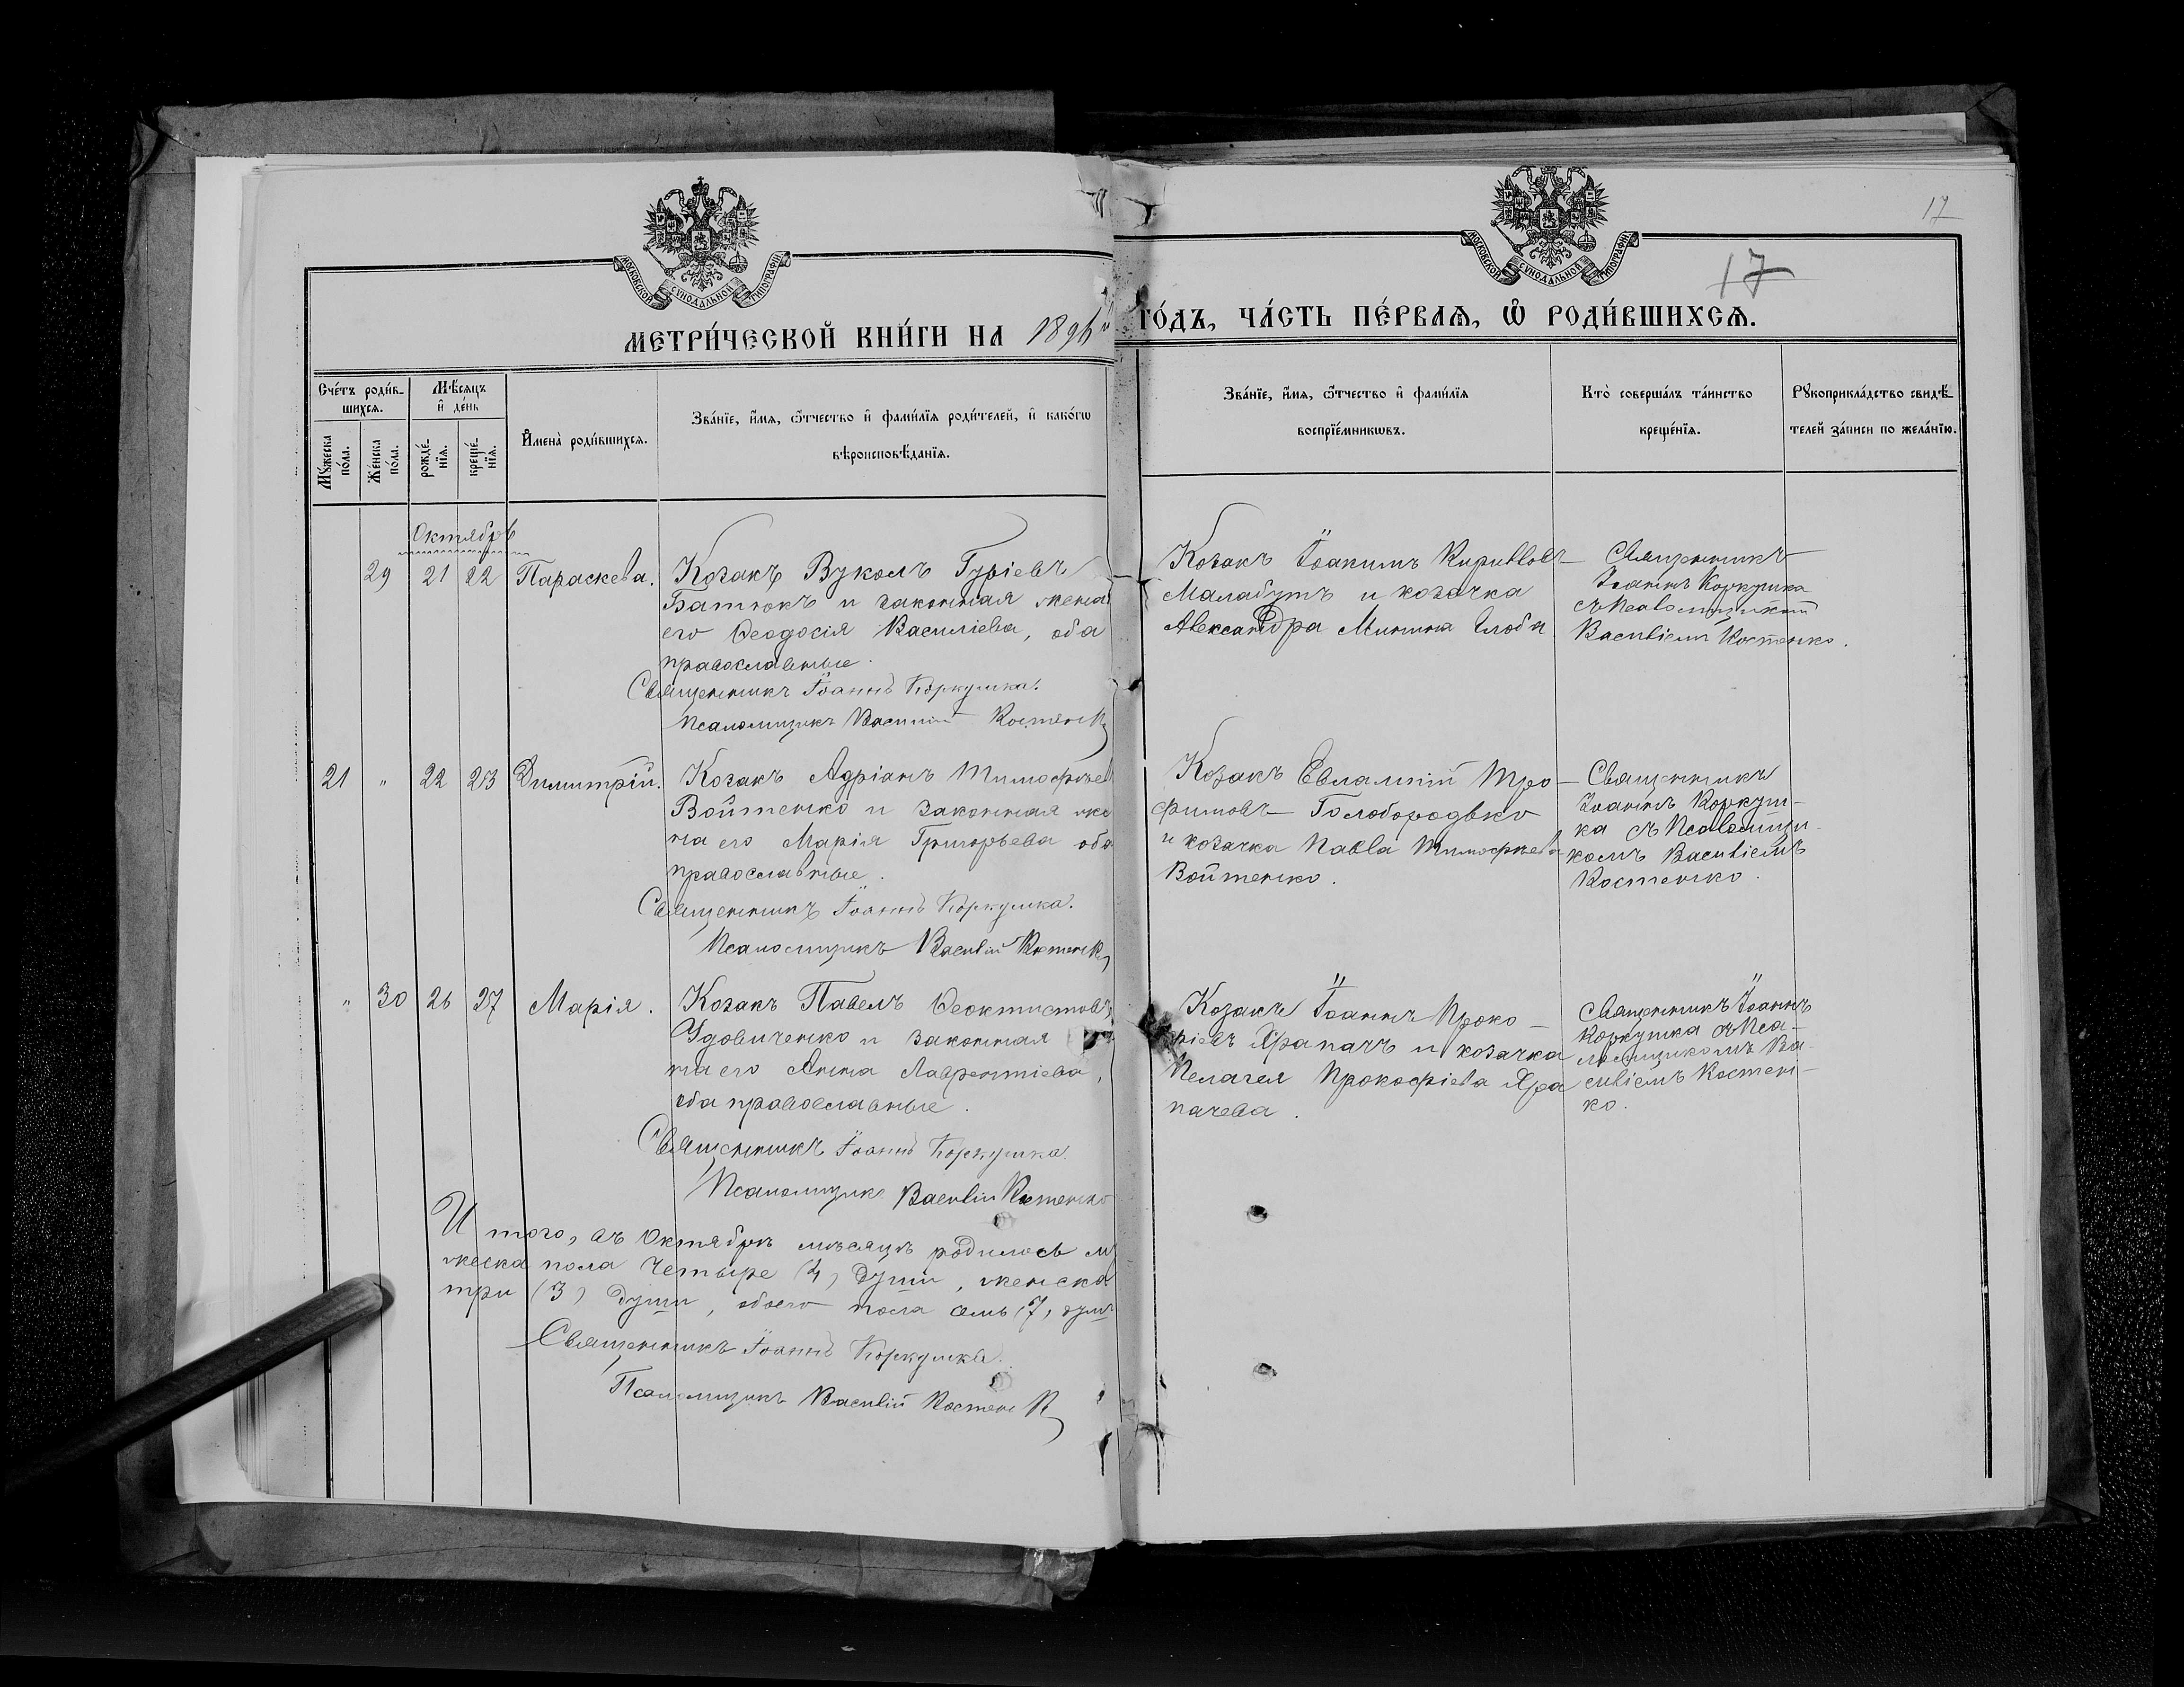 17
17
МОСКОВСКОЙ СѴНОДАЛЬНОЙ ТИПОГРАФІИ
МОСКОВСКОЙ СѴНОДАЛЬНОЙ ТИПОГРАФІИ
МЕТРИ́ЧЕСКОЙ КНИ́ГИ НА 1896й ГО́ДЪ, ЧА́СТЬ ПЕ́РВАѦ, Ѡ҆ РОДИ́ВШИХСѦ.
Сче́тъ роди́в-
шихсѧ.
Мꙋ́жеска
по́ла.
Же́нска
по́ла.
Мѣ́сѧцъ
и҆ де́нь
рожде́-
нїѧ.
креще́-
нїѧ.
И҆мена̀ роди́вшихсѧ.
Зва́нїе, и҆́мѧ, ѻ҆́тчество и҆ фами́лїѧ роди́телей, и҆ како́гѡ
вѣроисповѣ́данїѧ.
Зва́нїе, и҆́мѧ, ѻ҆́тчество и҆ фами́лїѧ
воспрїе́мникѡвъ.
Кто̀ соверша́лъ та́инство
креще́нїѧ.
Рꙋкоприкла́дство свидѣ́-
телей за́писи по жела́нїю.
Октябрь
29 21 22 Параскева.
Козакъ Вуколъ Гуріевъ
Батюкъ и законная жена
его Ѳеодосія Василіева, оба
православные.
Священникъ Іоаннъ Коркушка.
Псаломщикъ Василій Костенко
Козакъ Іоакимъ Кирилловъ
Маладутъ и козачка
Александра Минина Глоба
Священникъ
Іоаннъ Коркушка
съ Псаломщикомъ
Василіемъ Костенко.
21 " 22 23 Димитрій.
Козакъ Адріанъ Тимофѣевъ
Войтенко и законная же
на его Марія Григорьева оба
православные.
Священникъ Іоаннъ Коркушка.
Псаломщикъ Василій Костенко
Козакъ Евлампій Тро-
фимовъ Голобородько
и козачка Павла Тимофѣева
Войтенко.
Священникъ
Іоаннъ Коркуш-
ка съ Псаломщи-
комъ Василіемъ
Костенко.
" 30 26 27 Марія.
Козакъ Павелъ Ѳеоктистовъ
Удовиченко и законная
на его Анна Лаврентіева,
оба православные.
Священникъ Іоаннъ Коркушка.
Псаломщикъ Василій Костенко
Козакъ Іоаннъ Проко-
ріевъ Храпачъ и козачка
Пелагея Прокофіева Хра
пачева.
Священникъ Іоаннъ
Коркушка съ Пса-
ломщикомъ Ва-
силіемъ Костен-
ко.
Итого, въ Октябрѣ мѣсяцѣ родилось м
жеска пола четыре (4) души, женска
три (3) души, обоего пола семь (7) душ
Священникъ Іоаннъ Коркушка.
Псаломщикъ Василій Костенко